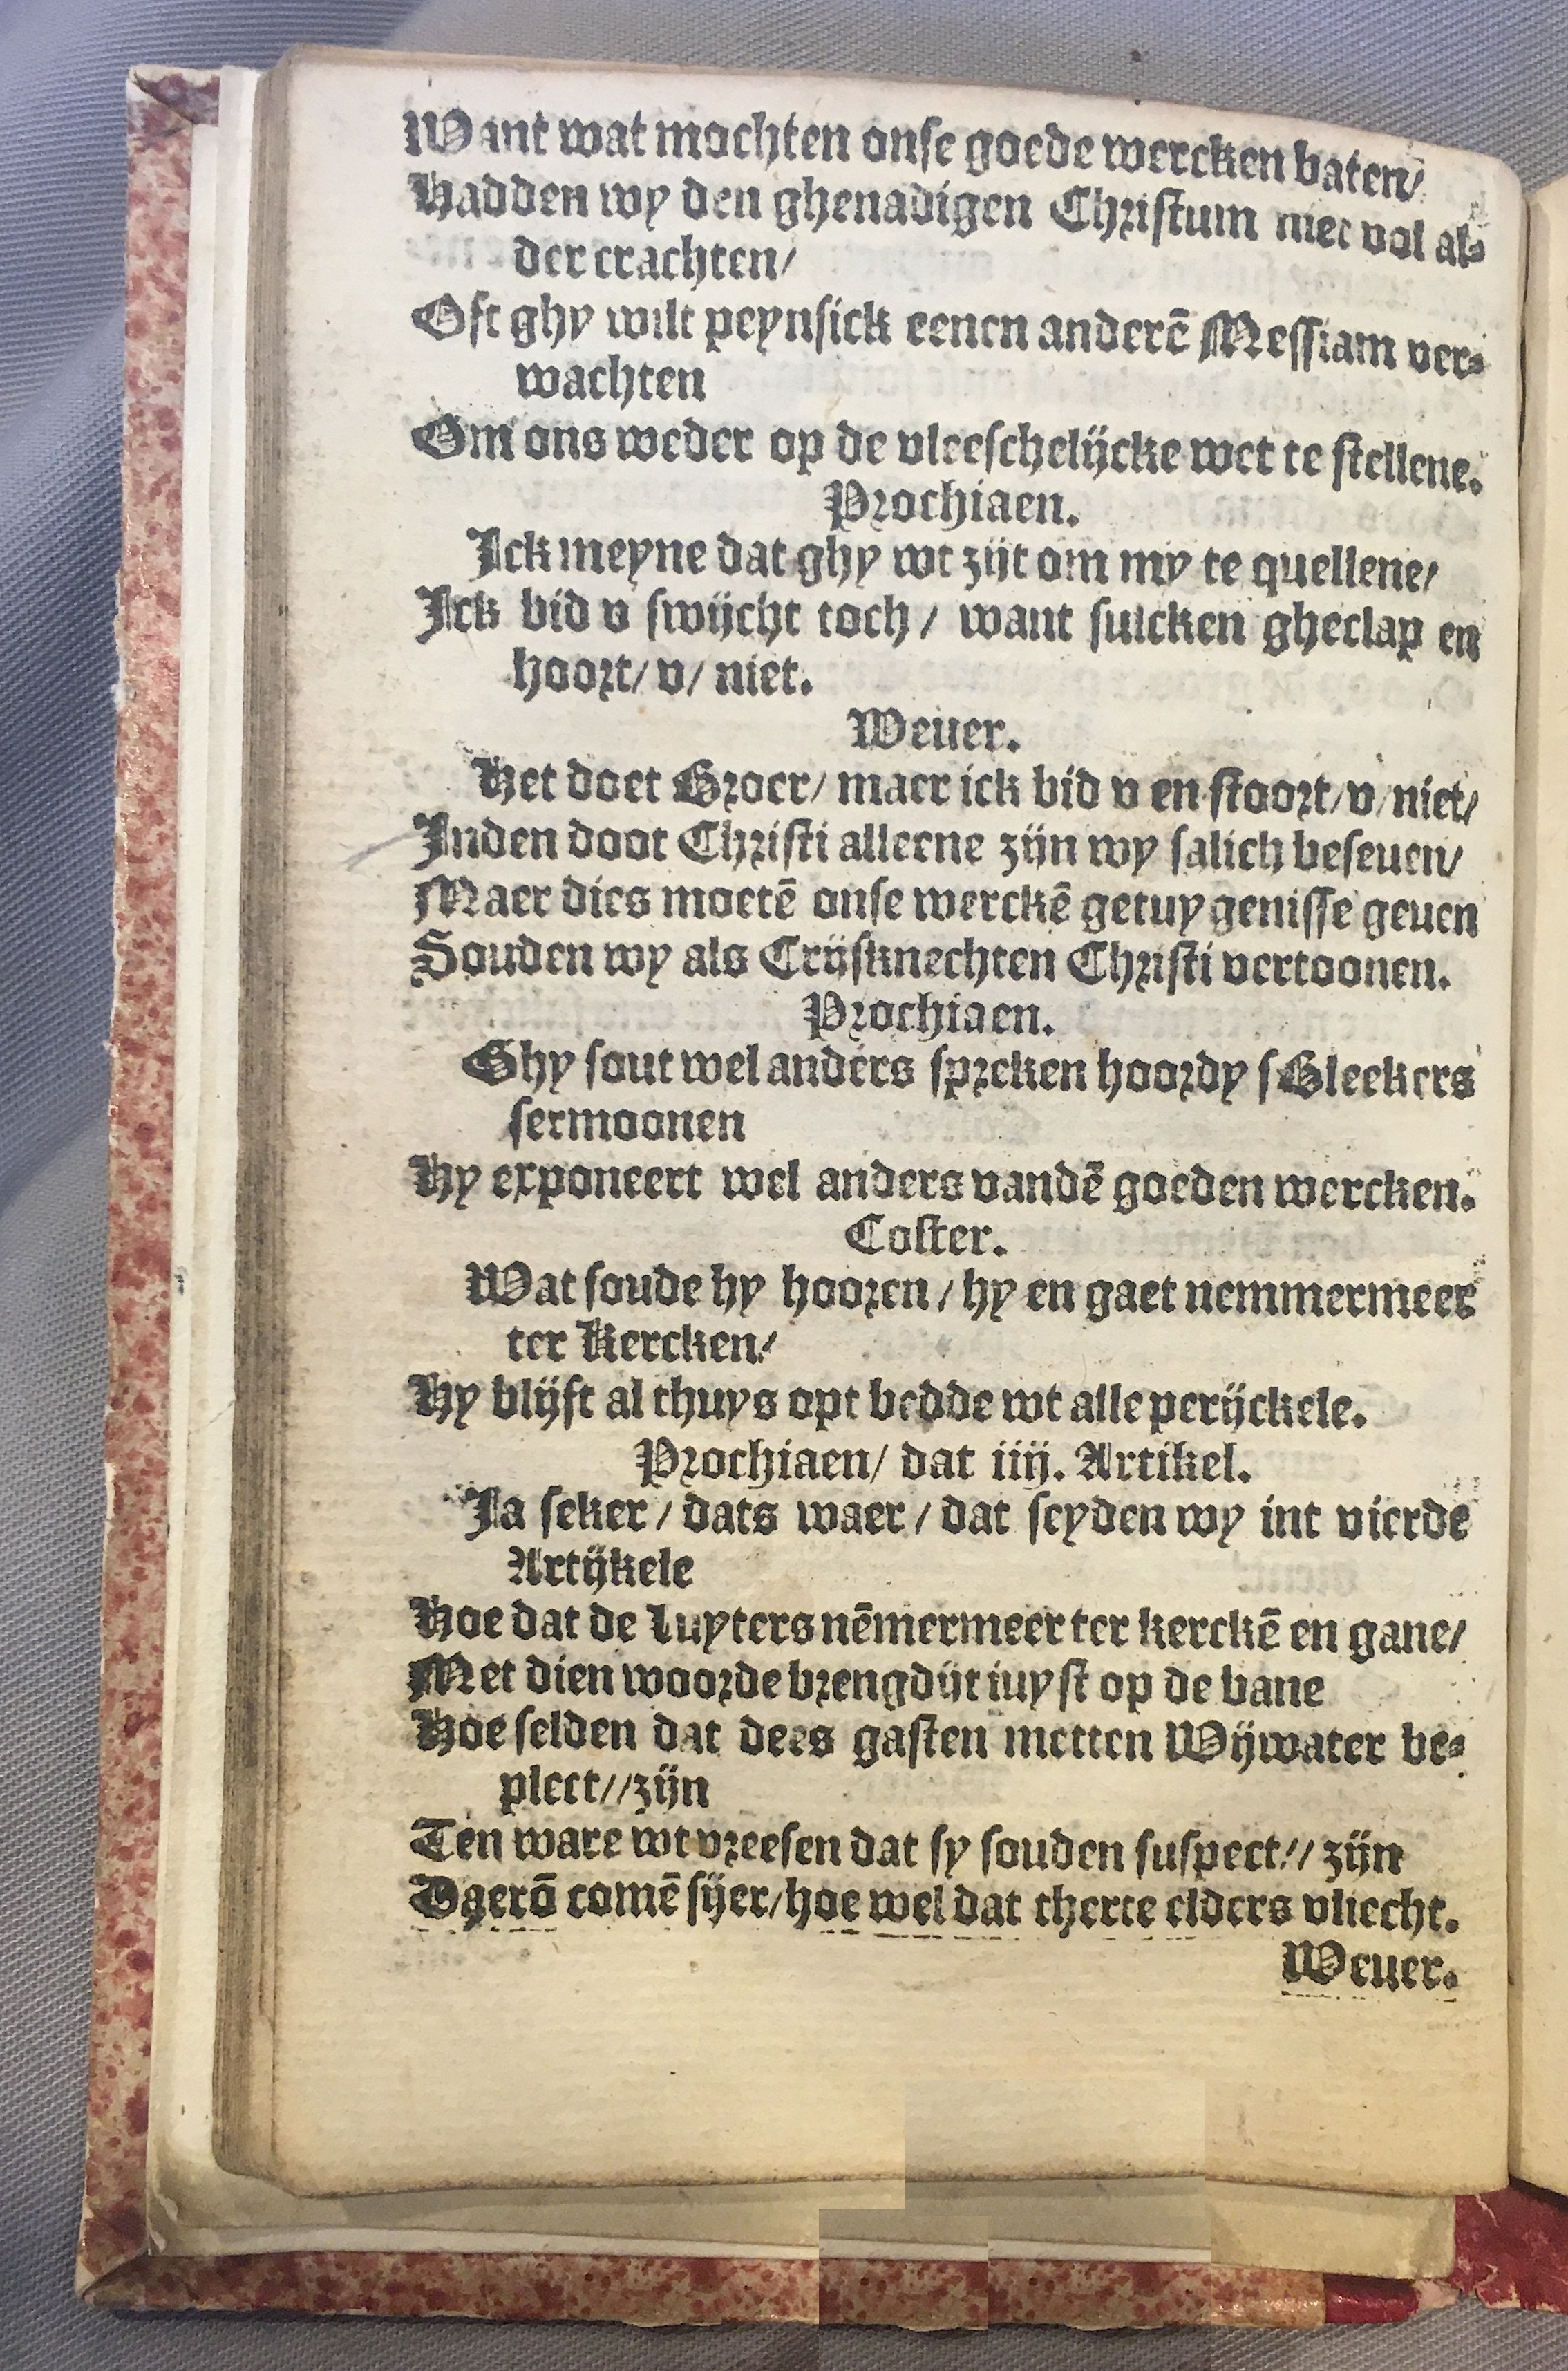 Want wat mochten onse goede wercken baten/
Hadden wy den ghenadigen Christum niet vol al⸗
der crachten/
Oft ghy wilt peynsick eenen anderē Messiam ver⸗
wachten
Om ons weder op de vleeschelijcke wet te stellene.
Prochiaen.
Ick meyne dat ghy wt zijt om my te quellene/
Ick bid v swijcht toch/ want sulcken gheclap en
hoort/ v/ niet.
Weuer.
Het doet Broer/ maer ick bid v en stoort/ v/ niet/
Inden doot Christi alleene zijn wy salich beseuen/
Maer dies moetē onse werckē getuygenisse geuen
Souden wy als Crijsknechten Christi vertoonen.
Prochiaen.
Ghy sout wel anders spreken hoordy sBleekers
sermoonen
Hy exponeert wel anders vandē goeden wercken.
Coster.
Wat soude hy hooren/ hy en gaet nemmermeer
ter Kercken/
Hy blijft al thuys opt bedde wt alle perijckele.
Prochiaen/ dat iiij. Artikel.
Ja seker/ dats waer/ dat seyden wy int vierde
Artijkele
Hoe dat de Luyters nēmermeer ter kerckē en gane/
Met dien woorde brengdijt iuyst op de bane
Hoe selden dat dees gasten metten Wijwater be⸗
plect//zijn
Ten ware wt vreesen dat sy souden suspect// zijn
Daerō comē sijer/ hoe wel dat therte elders vliecht.
Weuer.